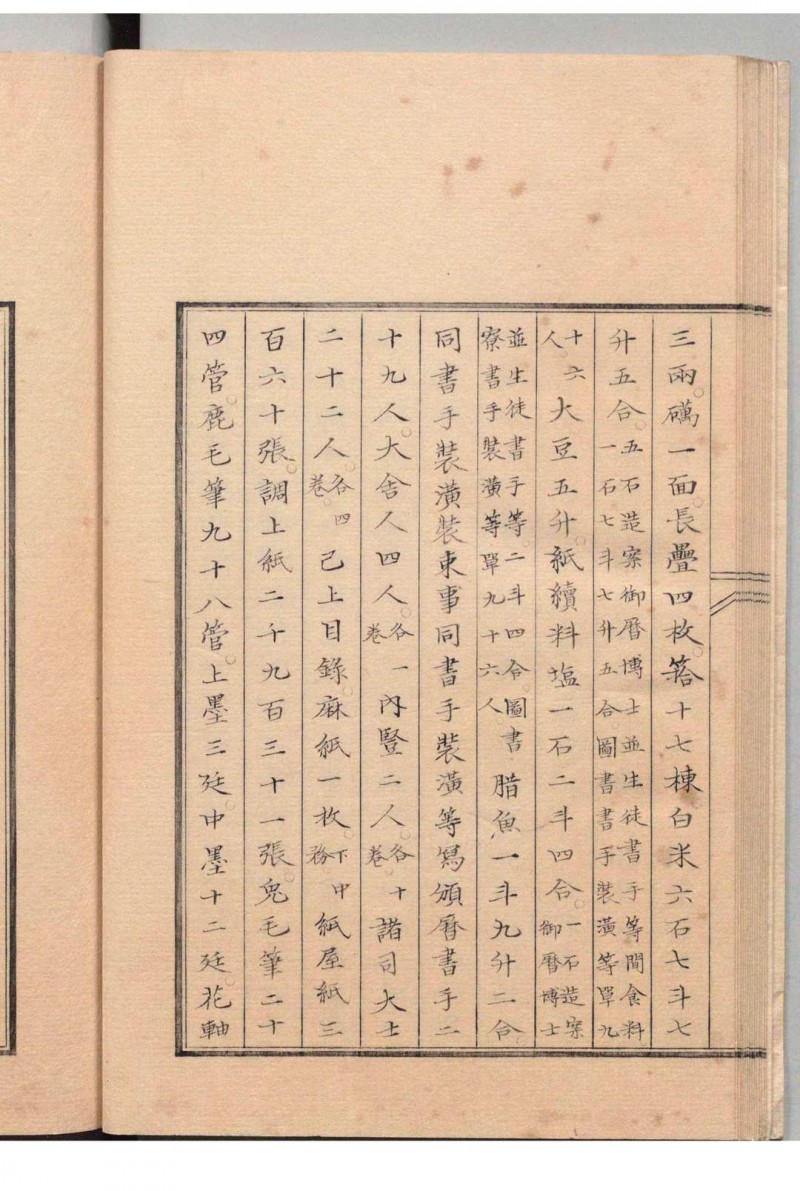 三兩。礪一面。長疊四枚。十七棟白米六石七斗七
升五合。五石造案御曆博士並生徒書手等間食料
一石七斗七升五合圖書書手裝潢等單九
十六
人。大豆五升。紙續料塩一石二斗四合。一石造案
御曆博士
並生徒書手等。二斗四合。圖書
寮書手裝潢等單九十六人腊魚一斗九升二合
同書手裝潢裝束事同書手裝潢等寫頒曆書手二
十九人。大舍人四人。各一卷内豎二人。各十卷諸司大士
二十二人。各四卷己上目錄。麻紙一枚。下中務紙屋紙三
百六十張。調上紙二千九百三十一張。兔毛筆二十
四管。鹿毛筆九十八管。上墨三廷。中墨十二廷。花軸